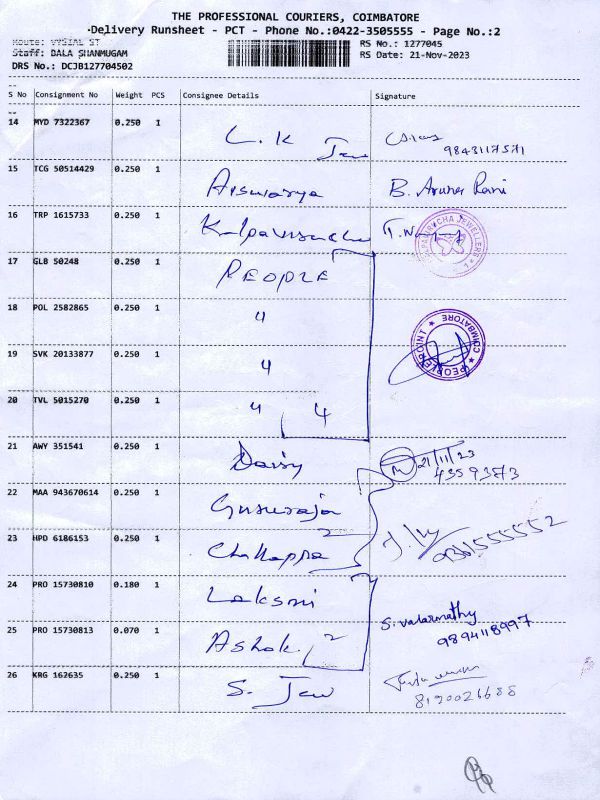 THE PROFESSIONAL COURIERS, COIMBATORE
Delivery Runsheet - PCT - Phone No.:0422-3505555 - Page No.:2
Route: VYSIAL ST
RS No.: 1277045
Staff: BALA SHANMUGAM
RS Date: 21-Nov-2023
DRS No.: DCJB127704502
S No Consignment No Weight PCS Consignee Details Signature
14 MYD 7322367 0.250 1 L. K
9843117571
15 TCG 50514429 0.250 1 Aiswarya B. Aruna Rani
16 TRP 1615733 0.250 1
JEWELLERS
17 GLB 50248 0.250 1 PEOPLE
18 POL 2582865 0.250 1 "
PEOPLE POINT ★ COIMBATORE ★
19 SVK 20133877 0.250 1 "
20 TVL 5015270 0.250 1 " 4
21 AWY 351541 0.250 1 Daisy 21/11/23
4359373
22 MAA 943670614 0.250 1 Gururaja
23 HPD 6186153 0.250 1 Challappa 2
9361555552
24 PRO 15730810 0.180 1 Laksmi
S. Valarmathy
9894118997
25 PRO 15730813 0.070 1 Ashok. 2
26 KRG 162635 0.250 1 S. Jew
8190026688